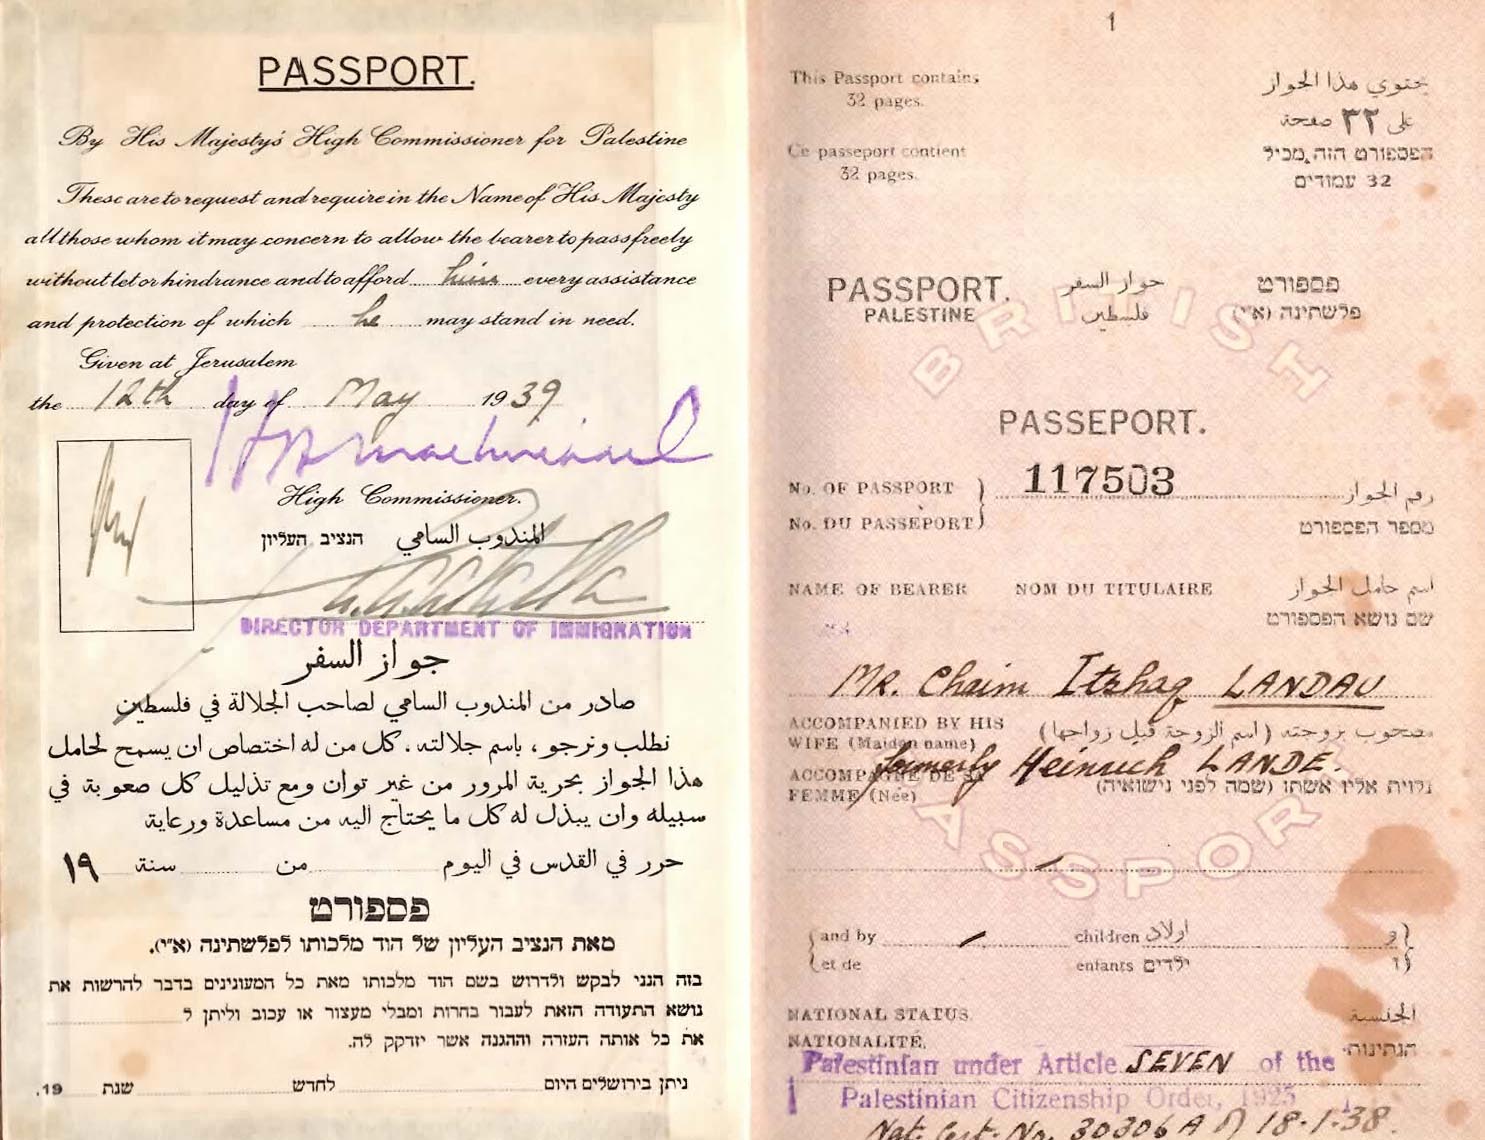 PASSPORT.
By His Majesty's High Commissioner for Palestine
These are to request and require in the Name of His Majesty
all those whom it may concern to allow the bearer to pass freely
without let or hindrance and to afford him every assistance
and protection of which he may stand in need.
Given at Jerusalem
the 12th day of May 1939
High Commissioner.
הנציב העליון المندوب السامي
DIRECTOR DEPARTMENT OF IMMIGRATION
جواز السفر
صادر من المندوب السامي لصاحب الجلالة في فلسطين
نطلب ونرجو، باسم جلالته، كل من له اختصاص ان يسمح لحامل
هذا الجواز بحرية المرور من غير توان ومع تذليل كل صعوبة في
سبيله وان يبذل له كل ما يحتاج اليه من مساعدة ورعاية
حرر في القدس في اليوم من سنة ١٩
פספורט
מאת הנציב העליון של הוד מלכותו לפלשתינה (א״י).
בזה הנני לבקש ולדרוש בשם הוד מלכותו מאת כל המעונינים בדבר להרשות את
נושא התעודה הזאת לעבור בחרות ומבלי מעצור או עכוב וליתן ל
את כל אותה העזרה וההגנה אשר יזדקק לה.
ניתן בירושלים היום לחדש שנת 19.
1
This Passport contains
32 pages.
يحتوي هذا الجواز
على ٣٢ صفحة
Ce passeport contient
32 pages.
הפספורט הזה מכיל
32 עמודים
PASSPORT. حواز السفر פספורט
PALESTINE فلسطين פלשתינה (א״י)
BRITISH
PASSEPORT.
No. OF PASSPORT 117503 رقم الجواز
No. DU PASSEPORT מספר הפספורט
NAME OF BEARER NOM DU TITULAIRE اسم حامل الجواز
שם נושא הפספורט
Mr. Chaim Itzhaq LANDAU
ACCOMPANIED BY HIS
WIFE (Maiden name)
مصحوب بزوجته (اسم الزوجة قبل زواجها)
formerly Heinrich LANDE.
ACCOMPAGNE DE SA
FEMME (Née)
נלוית אליו אשתו (שמה לפני נישואיה)
PASSPORT
and by children اولاد و
et de enfants ילדים ו
NATIONAL STATUS الجنسية
NATIONALITÉ. הנתינות
Palestinian under Article SEVEN of the
Palestinian Citizenship Order, 1925
Nat. Cert. No. 30306 A 18.1.38.